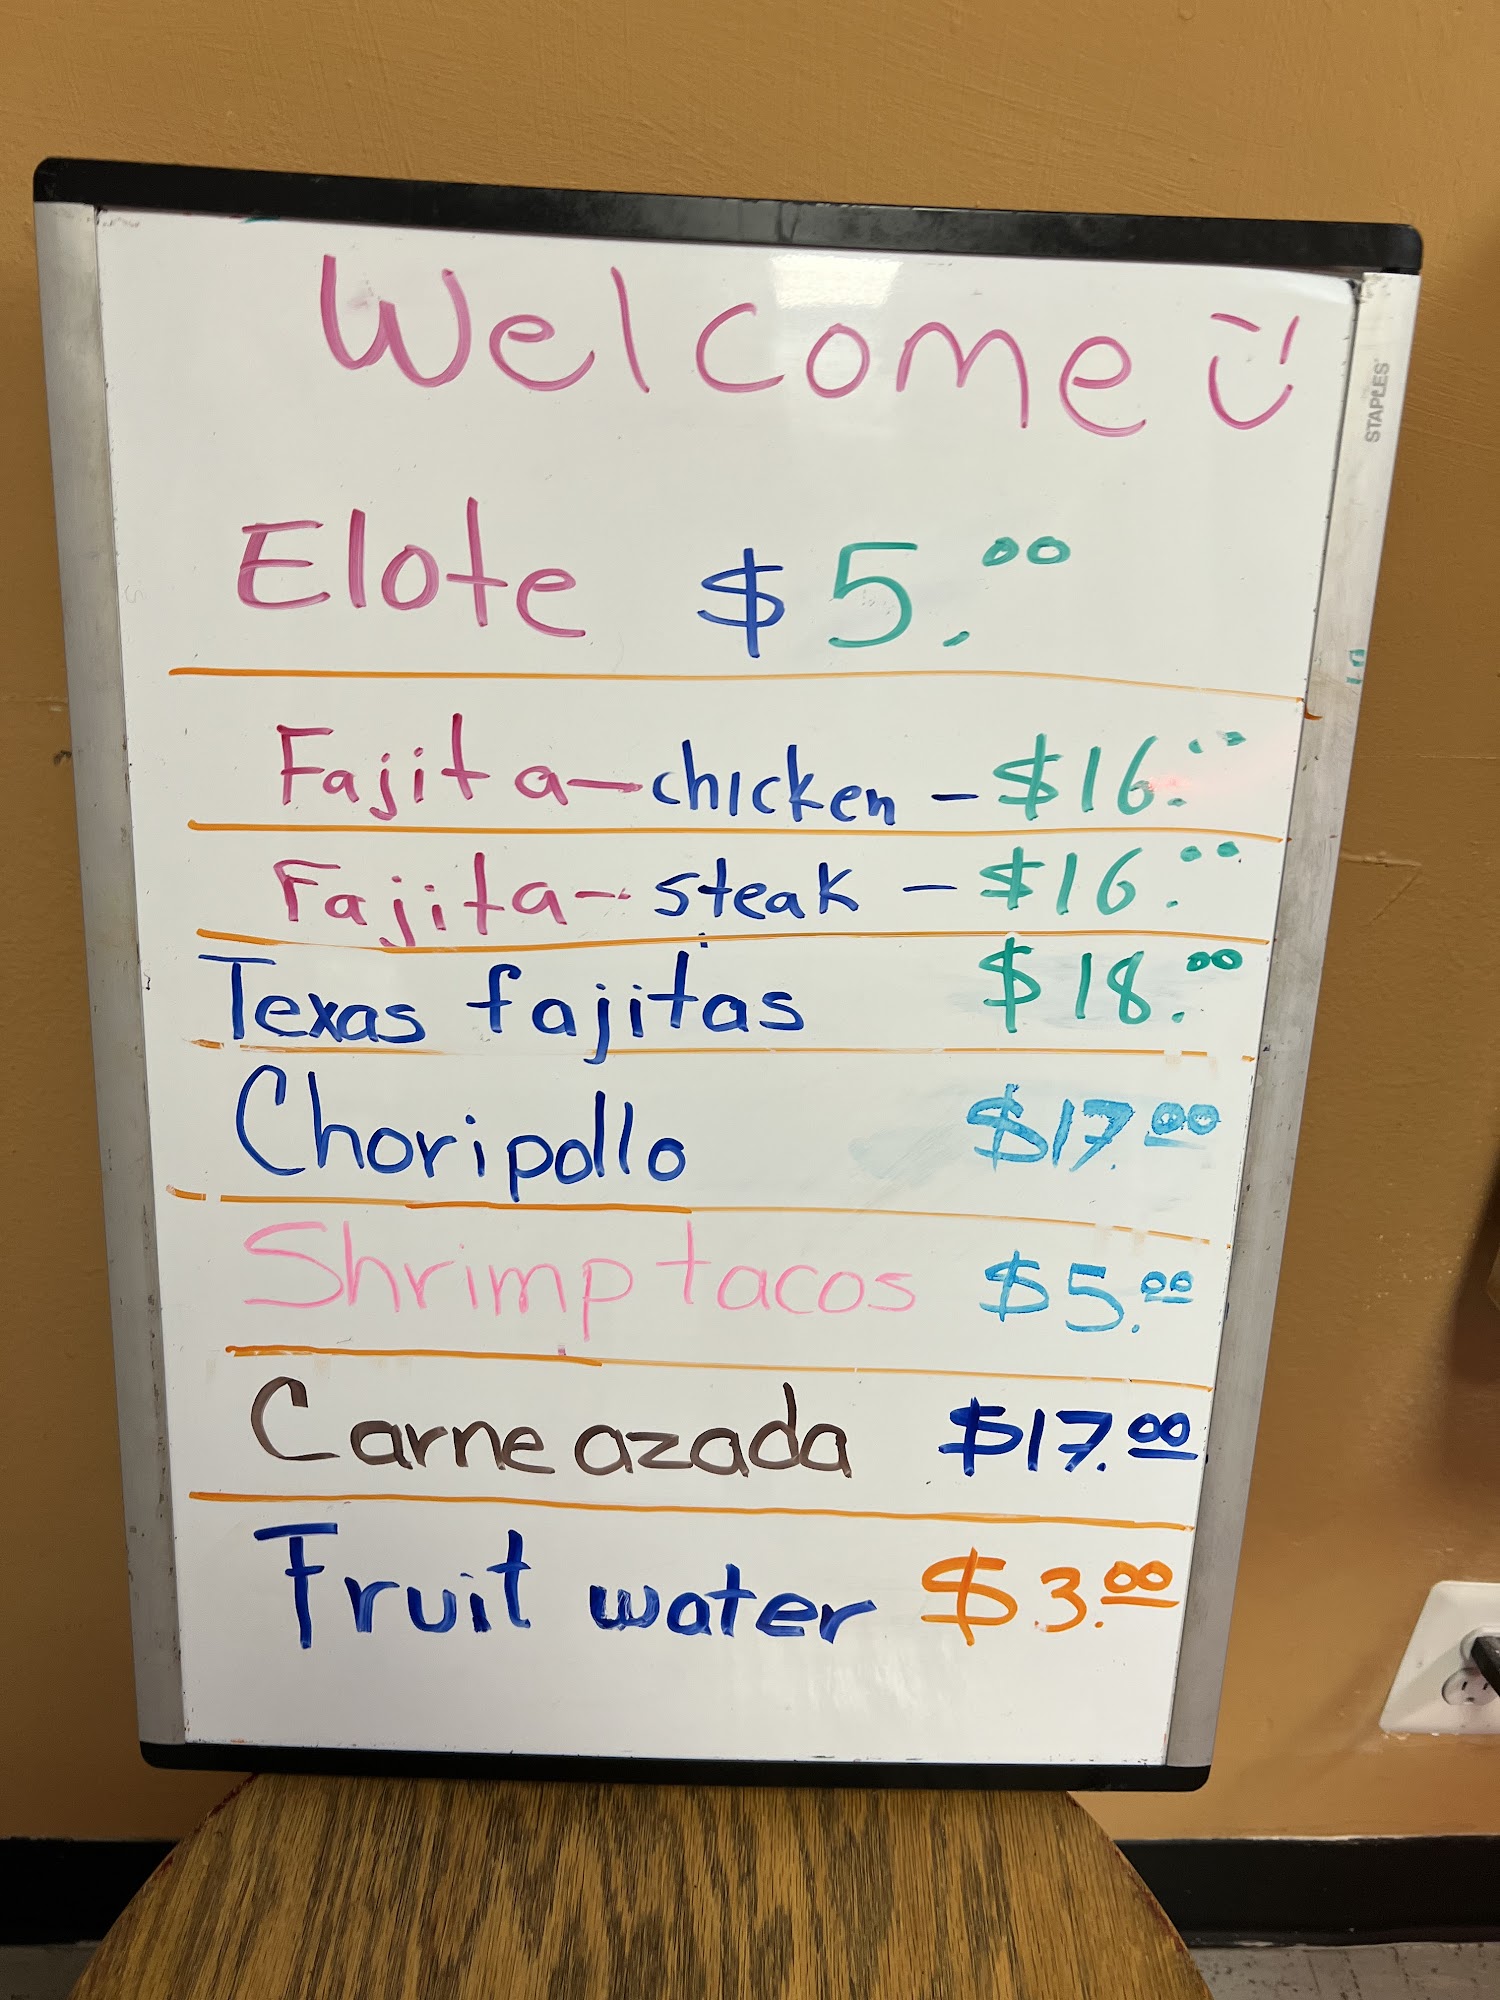 Welcome
STAPLES
Elote $5.00
Fajita-chicken - $16.00
Fajita- steak - $16.00
Texas fajitas $18.00
Choripollo $17.00
Shrimp tacos $5.00
Carne azada $17.00
Fruit water $3.00